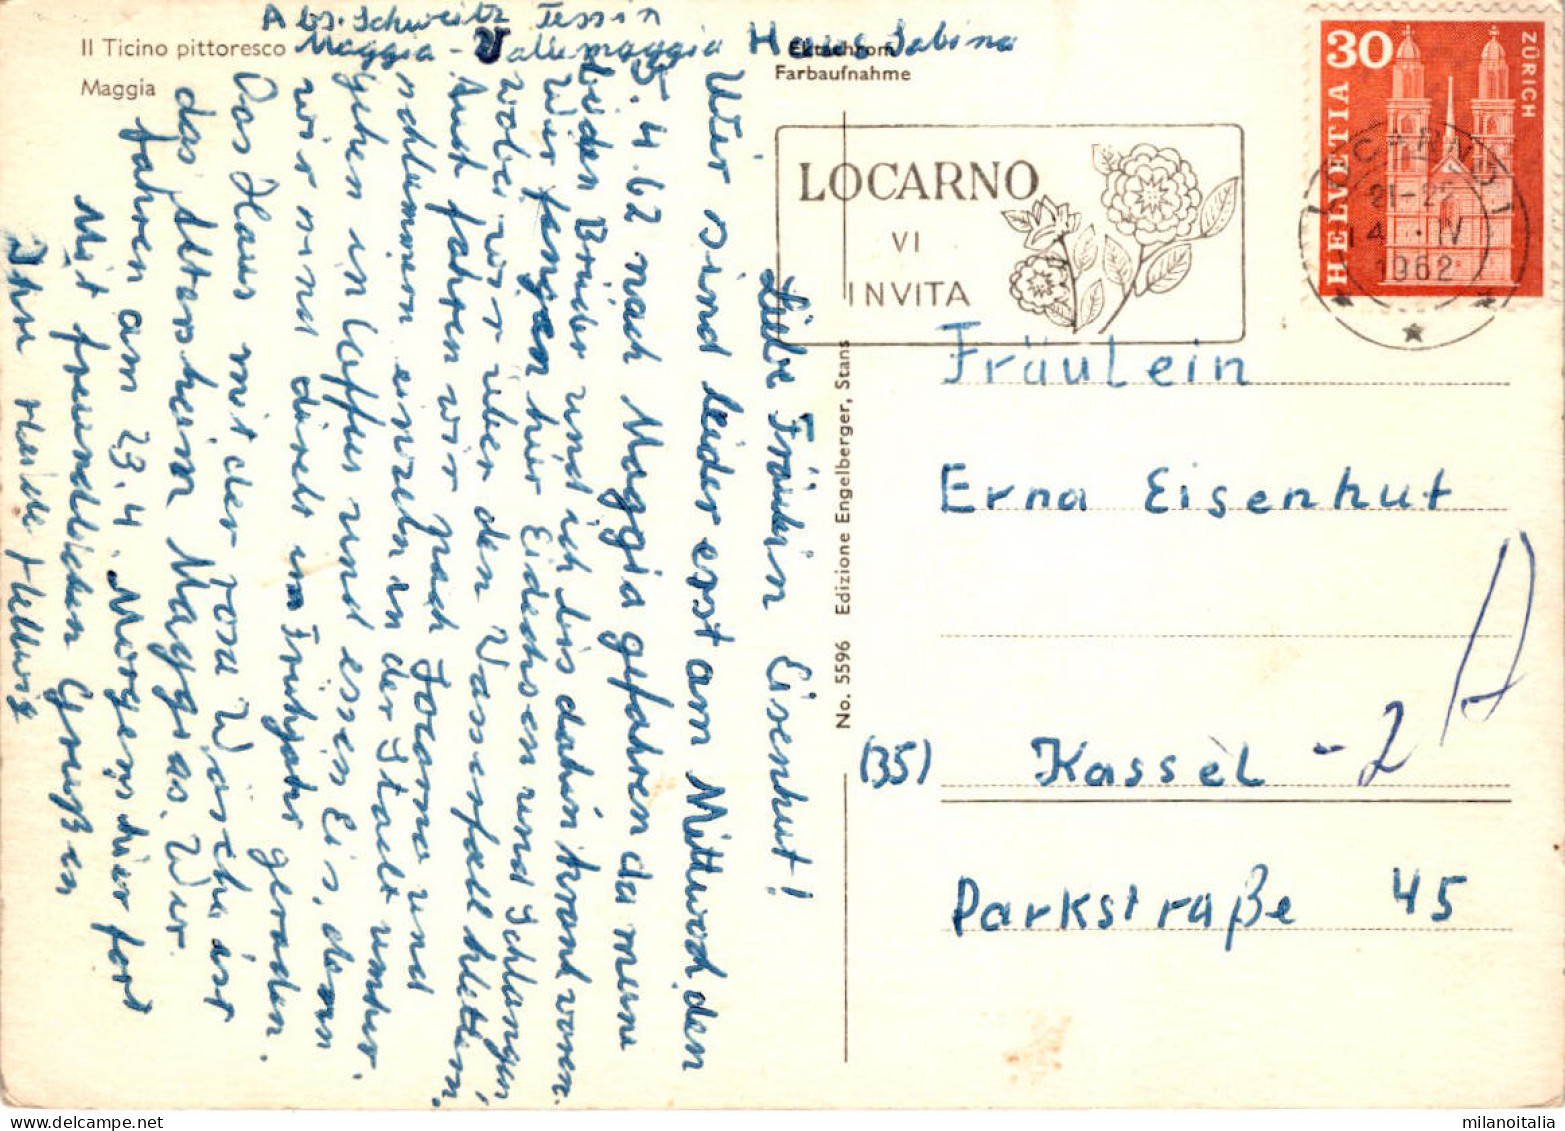 Abs. Schweitz Tessin
Maggia - Vallemaggia Haus Sabina
Il Ticino pittoresco
Maggia
Ektachrom
Farbaufnahme
LOCARNO
VI
INVITA
30
HELVETIA
ZÜRICH
LOCARNO 1
21-22
14. IV
1962
Liebe Fräulein Eisenhut!
Wier sind leider erst am Mittwoch den
5.4.62 nach Maggia gefahren da meine
beiden Brüder und ich bis dahin krank waren.
Wir fangen hier Eidechsen und Schlangen
wobei wir über den Wasserfall klettern.
Auch fahren wir nach Locarno und
schlummern einzeln in der Stadt umher.
gehen in und essen Eis, denn
wir sind direkt im Frühjahr geraden.
Das Haus mit der rosa Wäsche ist
das Altersheim Maggias. Wir
fahren am 23.4. Morgens hier fort
Mit freundlichen Grüßen
Ihre Heide Hellwig
No. 5596 Edizione Engelberger, Stans
Fräulein
Erna Eisenhut
(35) Kassel - 2
Parkstraße 45
milanoitalia